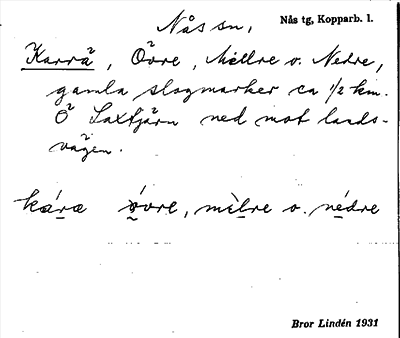 Nås sn,
Nås tg, Kopparb. l.
Karrå, Övre, Mellre o. Nedre,
gamla slogmarker ca 1/2 km.
Ö Laxtjärn ned mot lands-
vägen.
kára óvre, mèlre o. nédre
Bror Lindén 1931